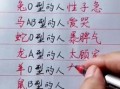 兔O型的人 性子急
马AB型的人 爱哭
蛇O型的人 暴脾气
龙A型的人 太顾家
羊O型的人
鼠B型的人